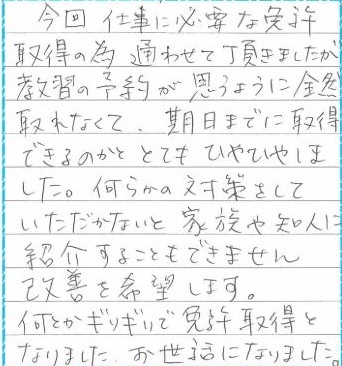 今回 仕事に必要な免許
取得の為 通わせて頂きましたが
教習の予約が 思うように全然
取れなくて、期日までに取得
できるのかと とても ひやひやしま
した。何らかの対策をして
いただかないと 家族や知人に
紹介することもできません
改善を希望します。
何とかギリギリで免許取得と
なりました。お世話になりました。